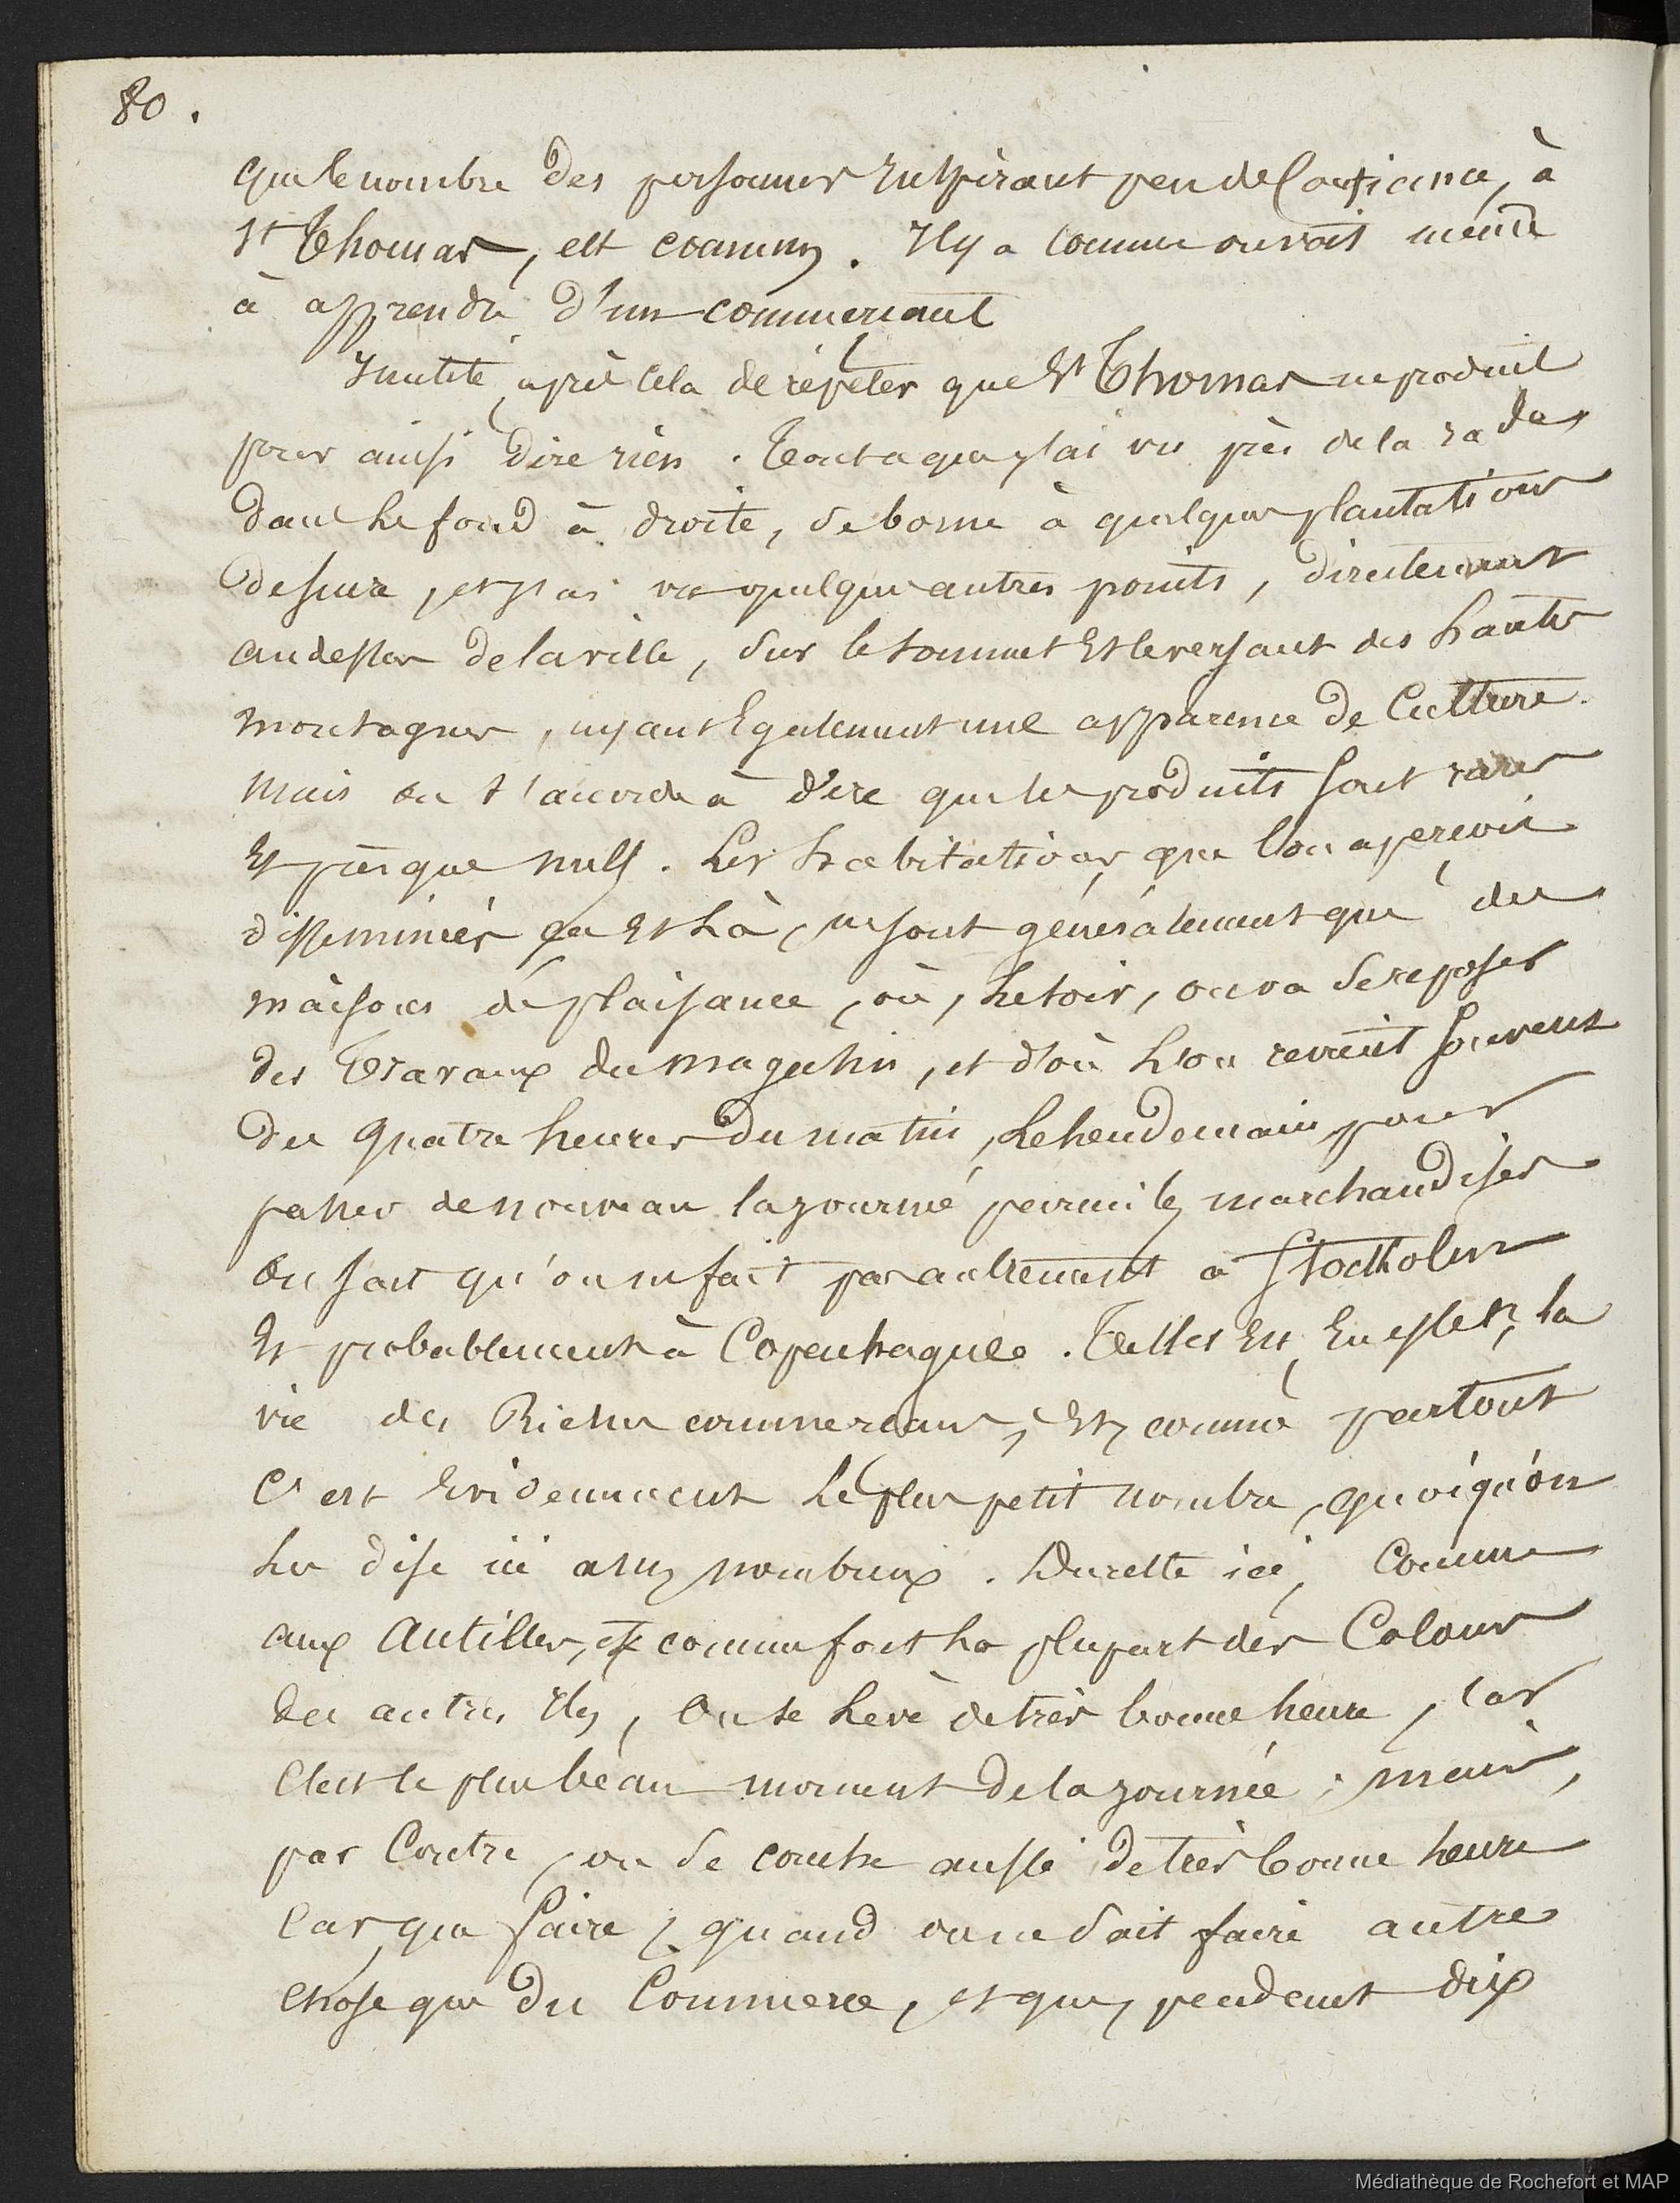 80.
que le nombre des personnes inspirant peu de Confiance, à
St Thomas, est commun. Il y a comme on voit même
à apprendre d'un commerçant
Inutile, après cela de répéter que St Thomas ne produit
pour ainsi dire rien. Tout ce que j'ai vu près de la rade,
dans le fond à droite, se borne à quelques plantations
de sucre, et j'ai vu quelques autres points, directement
au dessus de la ville, sur le sommet Et le versant des hautes
montagnes, ayant Egalement une apparence de Culture.
Mais on s'accorde à dire que les produits sont rares
Et presque nuls. Les habitations que l'on aperçoit
disséminées çà Et là, ne sont généralement que des
maisons de plaisance, où, le soir, on va se reposer
des Travaux du magasin, et d'où l'on revient souvent
dès quatre heures du matin, le lendemain, pour
passer de nouveau la journée parmi les marchandises
On sait qu'on ne fait pas autrement à Stockolm
Et probablement à Copenhague. Telles Est, En effet, la
vie des Riches commerçans, Et, comme partout
C'est Evidemment le plus petit nombre, quoiqu'on
les dise ici assez nombreux. Du reste ici, Comme
aux Antilles, et comme font la plupart des Colons
des autres Iles, On se lève de très bonne heure, car
C'est le plus beau moment de la journée; mais,
par Contre, on se couche aussi de très bonne heure
Car, que faire, quand on ne sait faire autre
Chose que du Commerce, et que, pendant dix
Médiathèque de Rochefort et MAP